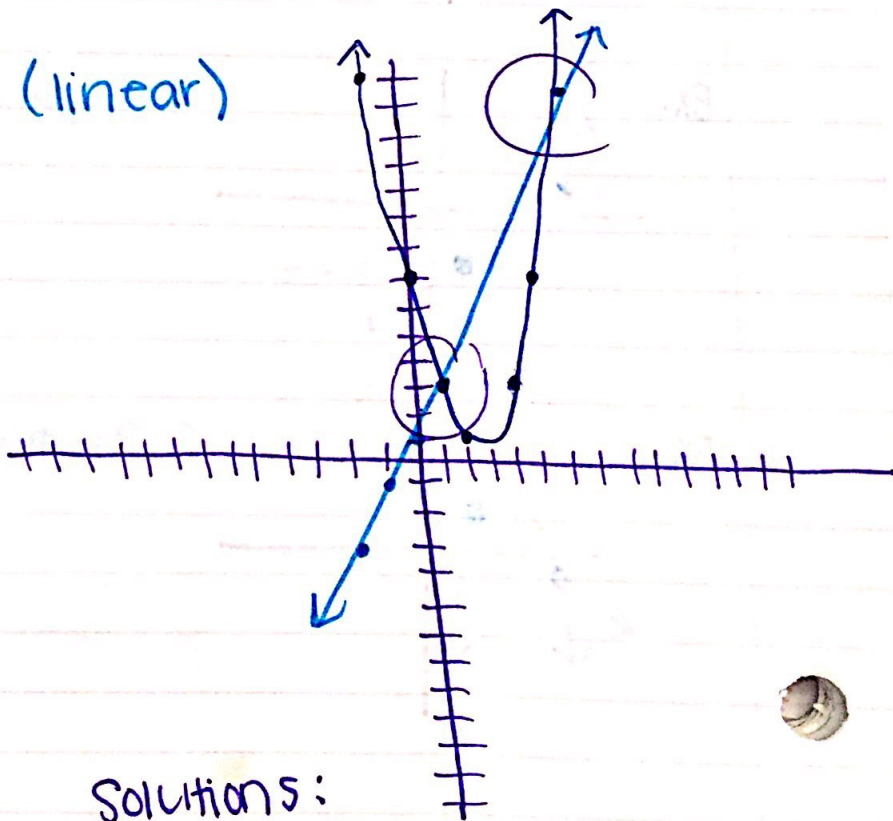 (linear)
Solutions: